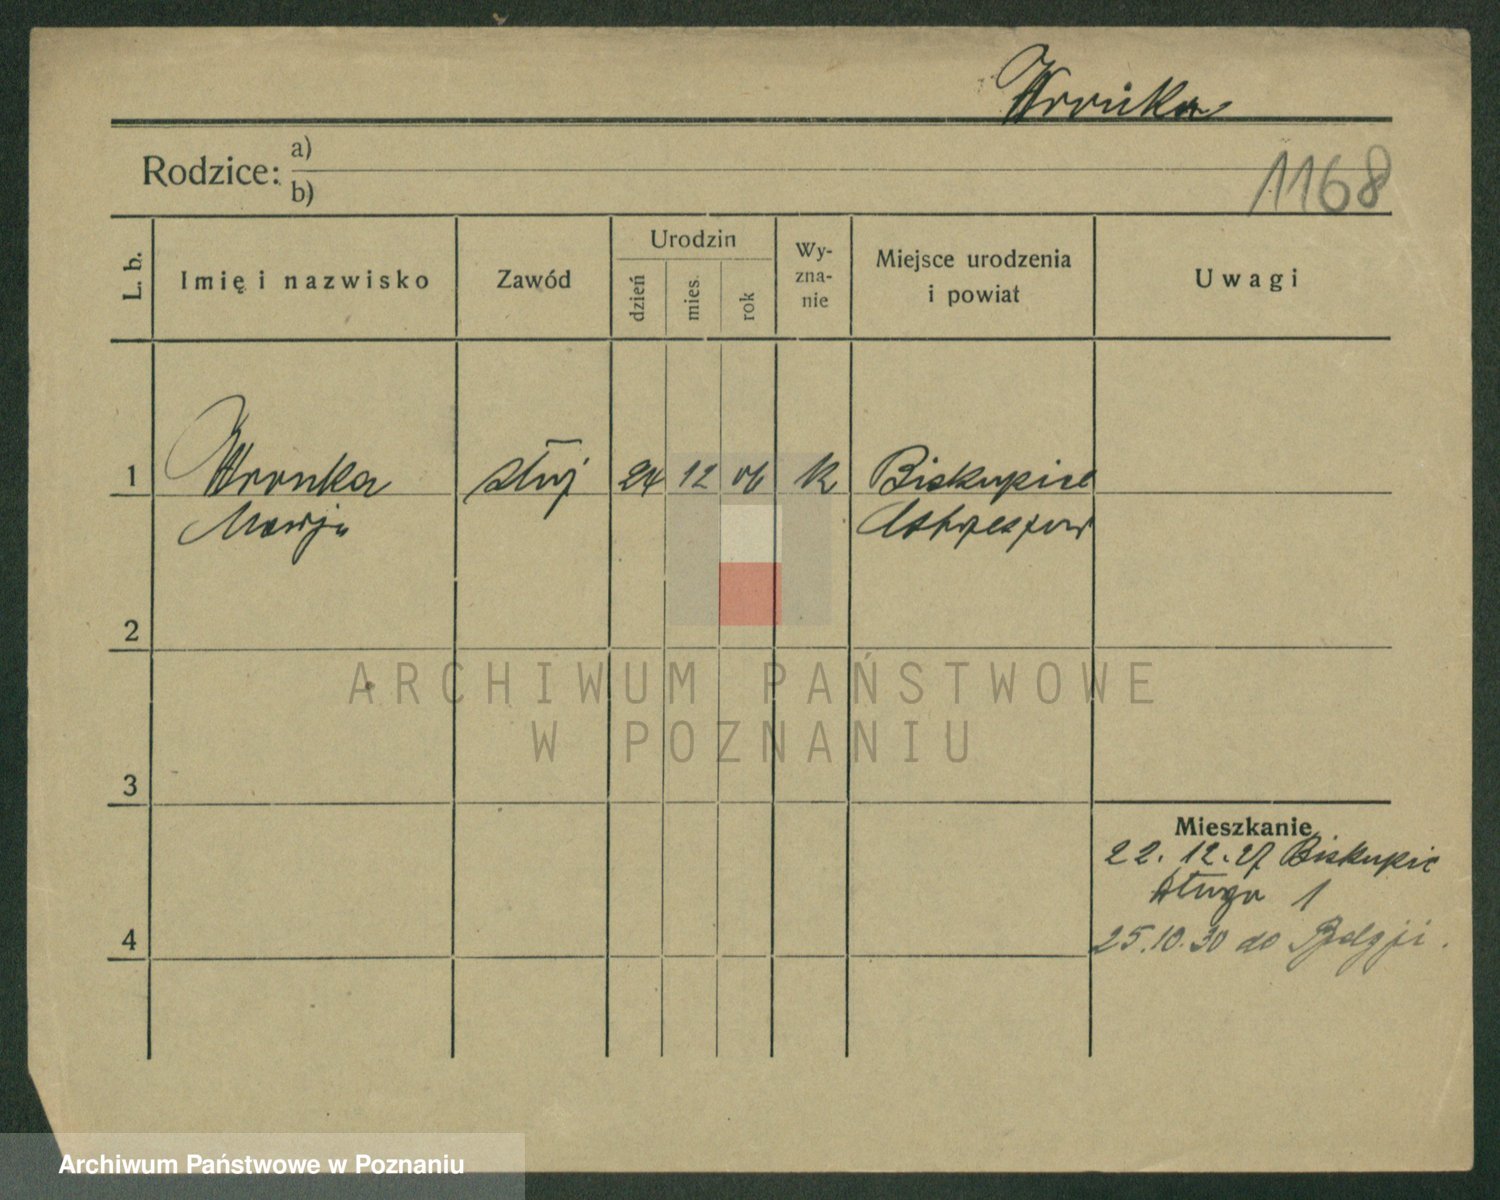 Wronka
Rodzice: a)
b)
1168
L. b.
Imię i nazwisko
Zawód
Urodzin
dzień
mies.
rok
Wy-
zna-
nie
Miejsce urodzenia
i powiat
Uwagi
1 Wronka służ 24 12 06 k Biskupice
Marja
2
ARCHIWUM PAŃSTWOWE
W POZNANIU
3
Mieszkanie
22. 12. 27 Biskupic
Długa 1
4
25. 10. 30 do Belgji.
Archiwum Państwowe w Poznaniu